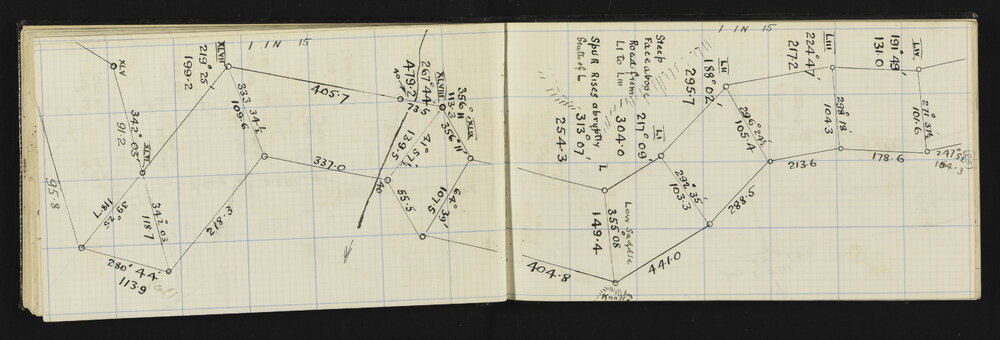 1 IN 15
XLV
342° 03'
91.2
XLVI
XLVII
219° 25'
199.2
333° 34½'
109.6
405.7
337.0
95.8
39° 25'
118.7
342° 03'
118.7
218.3
280° 44'
113.9
267° 44.5'
479.2
XLVIII
113.3
73
40
356° 11'
XLIX
356° 11'
71° 57½'
139.5
64° 39'
107.5
55.5
40
1 IN 15
Spur Rises abruptly
South of L
313° 07'
254.3
L
Steep
Face above
Road from
LI to LII
217° 09'
304.0
LI
188° 02'
295.7
LII
355° 08'
149.4
Low Saddle
Knoll
404.8
441.0
292° 35'
103.3
288.5
296° 24½'
105.4
213.6
224° 47'
217.2
LIII
298° 18'
104.3
178.6
191° 49'
131.0
LIV.
271° 31½'
101.6
247° 52'
164.3